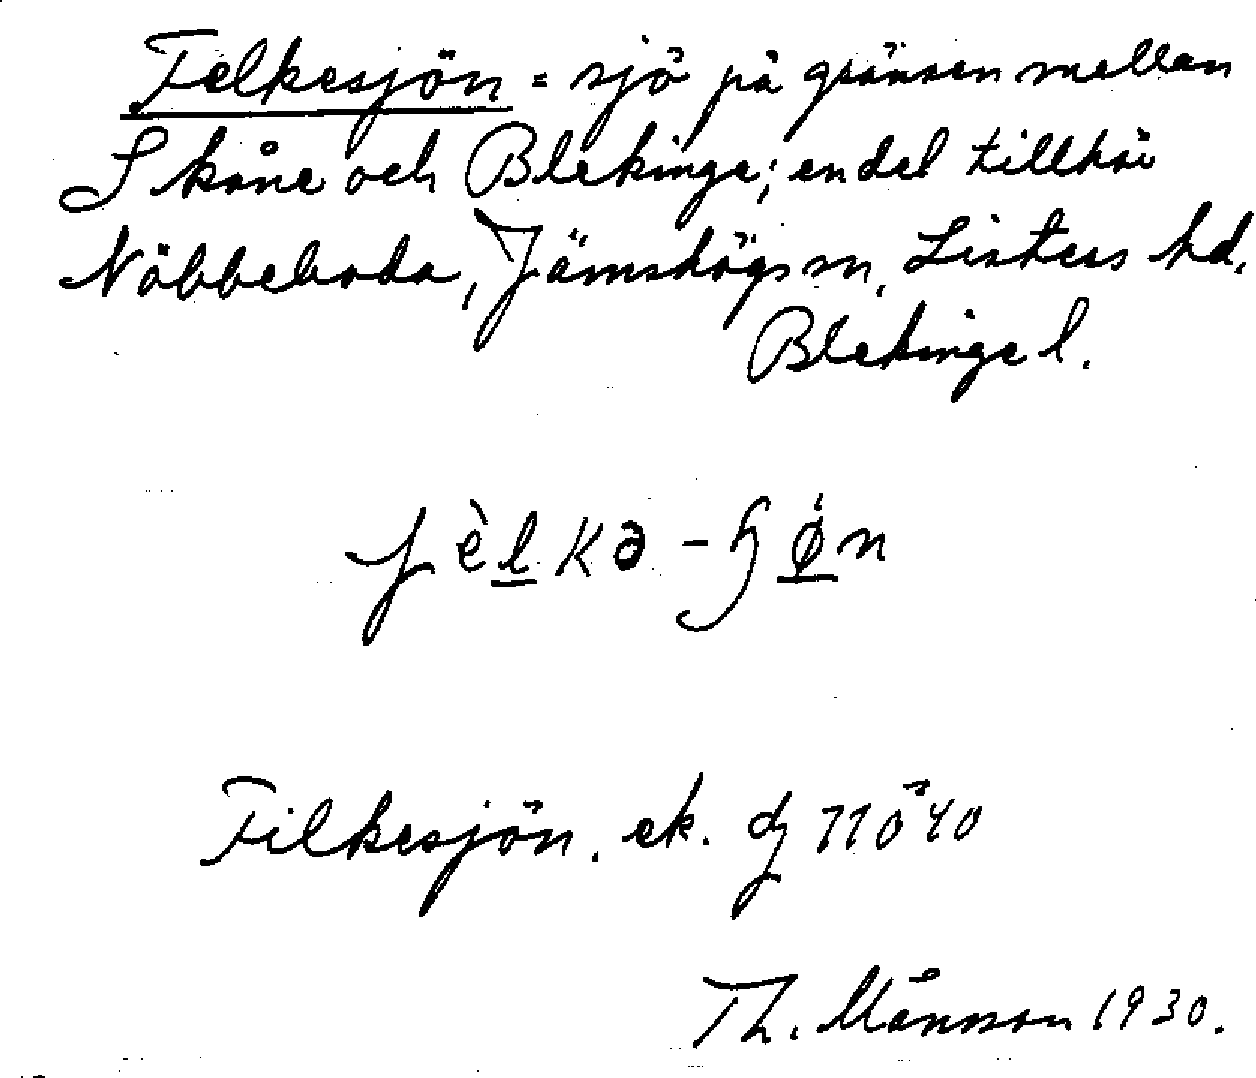 Felkesjön = sjö på gränsen mellan
Skåne och Blekinge; en del tillhör
Nöbbeboda, Jämshögs sn, Listers hd,
Blekinge l.
fèlkə-ɧøn
Filkesjön. ek.
Th. Månsson 1930.